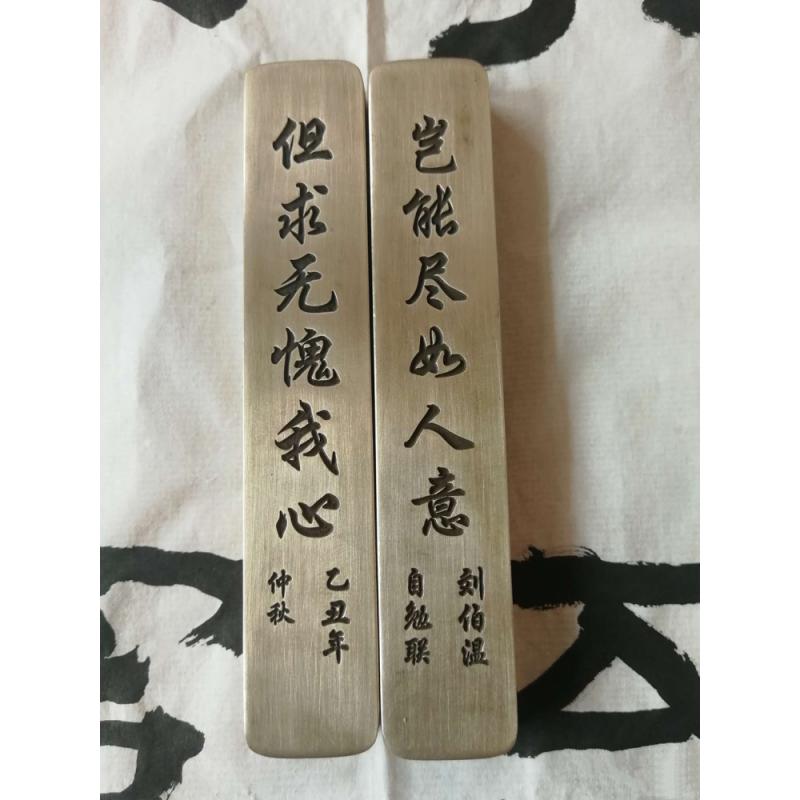 岂能尽如人意
刘伯温
自勉联
但求无愧我心
乙丑年
仲秋